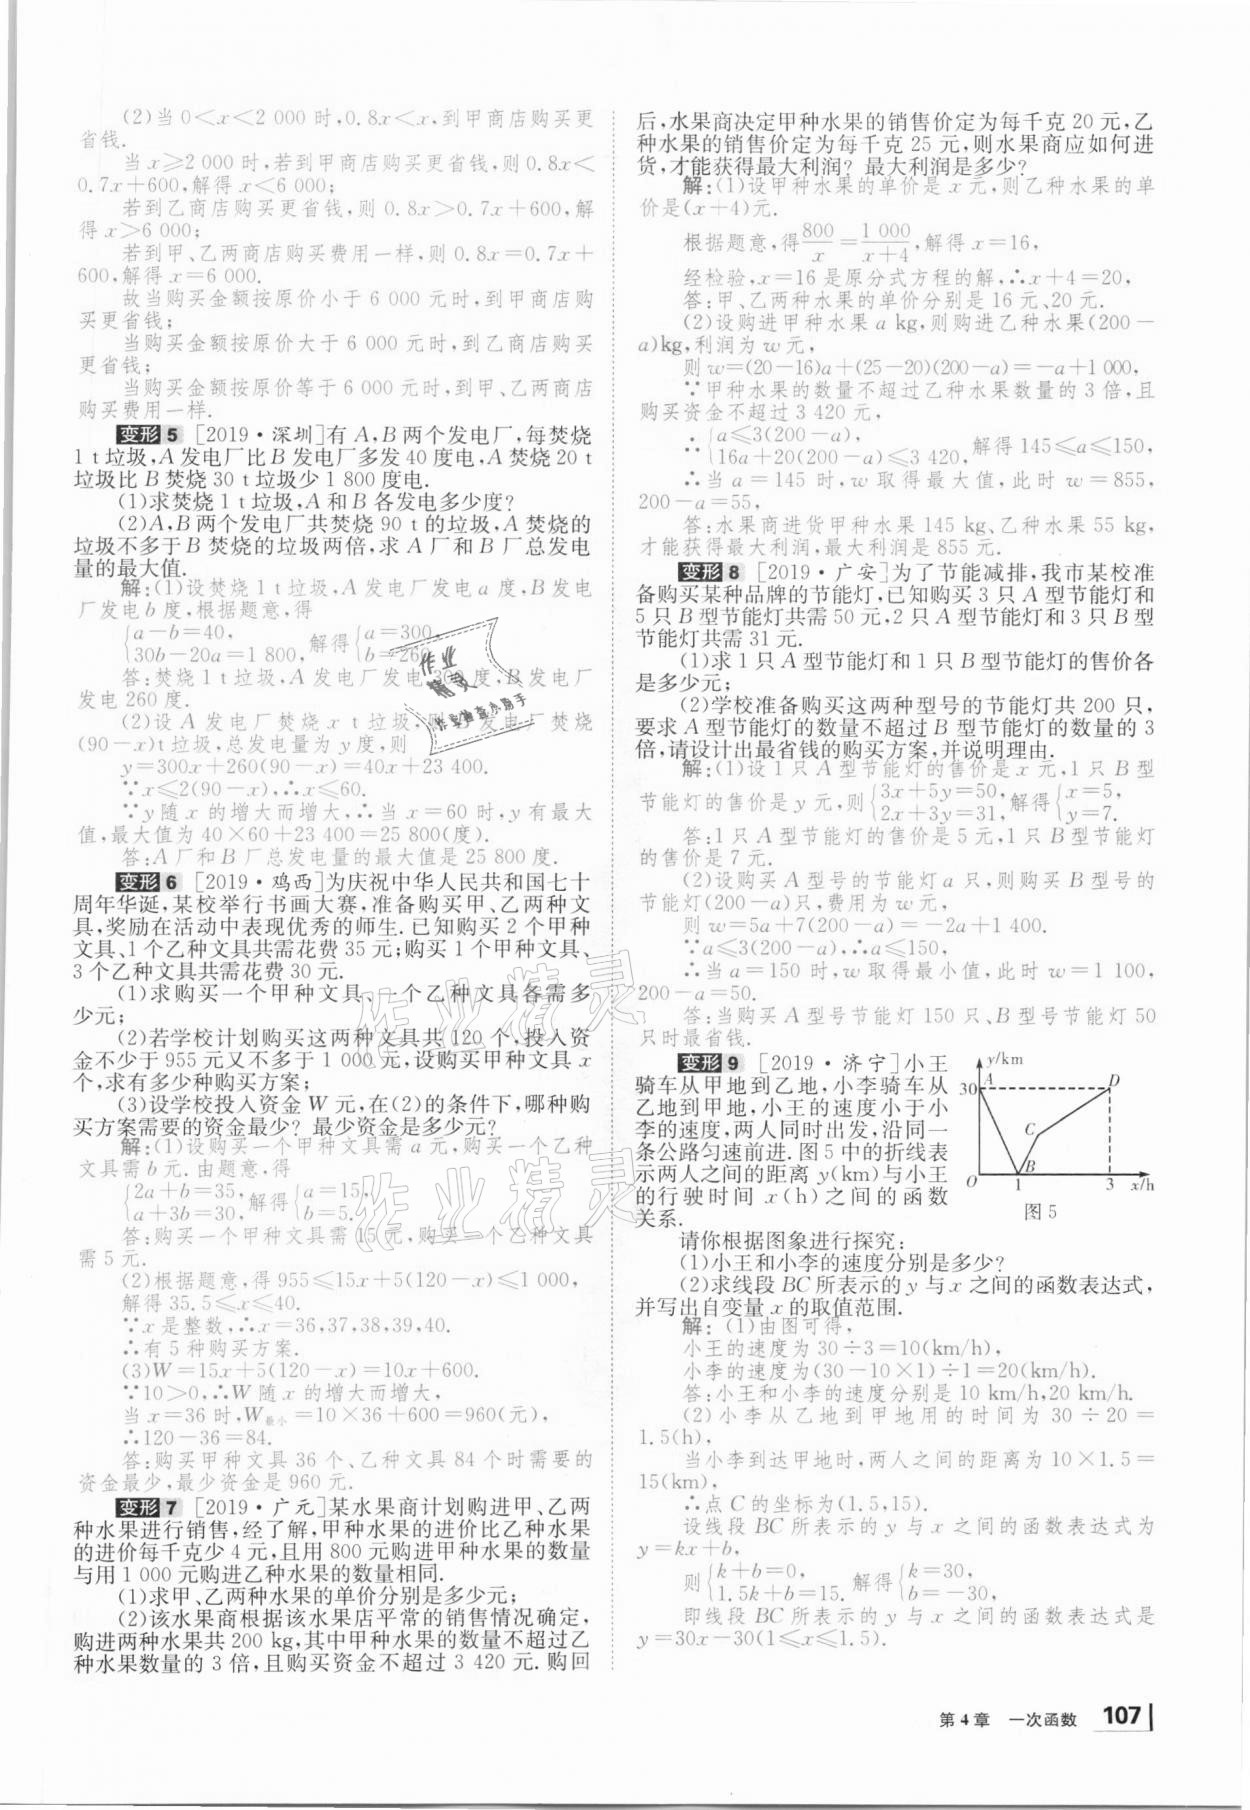 (2)当0<x<2 000时,0.8x<x,到甲商店购买更
省钱.
当x≥2 000时,若到甲商店购买更省钱,则0.8x<
0.7x+600,解得x<6 000;
若到乙商店购买更省钱,则0.8x>0.7x+600,解
得x>6 000;
若到甲、乙两商店购买费用一样,则0.8x=0.7x+
600,解得x=6 000.
故当购买金额按原价小于6 000元时,到甲商店购
买更省钱;
当购买金额按原价大于6 000元时,到乙商店购买
更省钱;
当购买金额按原价等于6 000元时,到甲、乙两商店
购买费用一样.
变形5 [2019·深圳]有A,B两个发电厂,每焚烧
1 t垃圾,A发电厂比B发电厂多发40度电,A焚烧20 t
垃圾比B焚烧30 t垃圾少1 800度电.
(1)求焚烧1 t垃圾,A和B各发电多少度?
(2)A,B两个发电厂共焚烧90 t的垃圾,A焚烧的
垃圾不多于B焚烧的垃圾两倍,求A厂和B厂总发电
量的最大值.
解:(1)设焚烧1 t垃圾,A发电厂发电a度,B发电
厂发电b度,根据题意,得
{a-b=40,
30b-20a=1 800, 解得{a=300,
b=260.
答:焚烧1 t垃圾,A发电厂发电300度,B发电厂
发电260度.
(2)设A发电厂焚烧x t垃圾,则B发电厂焚烧
(90-x)t垃圾,总发电量为y度,则
y=300x+260(90-x)=40x+23 400.
∵x≤2(90-x),∴x≤60.
∵y随x的增大而增大,∴当x=60时,y有最大
值,最大值为40×60+23 400=25 800(度).
答:A厂和B厂总发电量的最大值是25 800度.
变形6 [2019·鸡西]为庆祝中华人民共和国七十
周年华诞,某校举行书画大赛,准备购买甲、乙两种文
具,奖励在活动中表现优秀的师生.已知购买2个甲种
文具、1个乙种文具共需花费35元;购买1个甲种文具、
3个乙种文具共需花费30元.
(1)求购买一个甲种文具、一个乙种文具各需多
少元;
(2)若学校计划购买这两种文具共120个,投入资
金不少于955元又不多于1 000元,设购买甲种文具x
个,求有多少种购买方案;
(3)设学校投入资金W元,在(2)的条件下,哪种购
买方案需要的资金最少? 最少资金是多少元?
解:(1)设购买一个甲种文具需a元,购买一个乙种
文具需b元.由题意,得
{2a+b=35,
a+3b=30, 解得{a=15,
b=5.
答:购买一个甲种文具需15元,购买一个乙种文具
需5元.
(2)根据题意,得955≤15x+5(120-x)≤1 000,
解得35.5≤x≤40.
∵x是整数,∴x=36,37,38,39,40.
∴有5种购买方案.
(3)W=15x+5(120-x)=10x+600.
∵10>0,∴W随x的增大而增大,
当x=36时,W最小=10×36+600=960(元),
∴120-36=84.
答:购买甲种文具36个、乙种文具84个时需要的
资金最少,最少资金是960元.
变形7 [2019·广元]某水果商计划购进甲、乙两
种水果进行销售,经了解,甲种水果的进价比乙种水果
的进价每千克少4元,且用800元购进甲种水果的数量
与用1 000元购进乙种水果的数量相同.
(1)求甲、乙两种水果的单价分别是多少元;
(2)该水果商根据该水果店平常的销售情况确定,
购进两种水果共200 kg,其中甲种水果的数量不超过乙
种水果数量的3倍,且购买资金不超过3 420元.购回
后,水果商决定甲种水果的销售价定为每千克20元,乙
种水果的销售价定为每千克25元,则水果商应如何进
货,才能获得最大利润? 最大利润是多少?
解:(1)设甲种水果的单价是x元,则乙种水果的单
价是(x+4)元.
根据题意,得800/x=1 000/(x+4),解得x=16,
经检验,x=16是原分式方程的解,∴x+4=20,
答:甲、乙两种水果的单价分别是16元、20元.
(2)设购进甲种水果a kg,则购进乙种水果(200-
a)kg,利润为w元,
则w=(20-16)a+(25-20)(200-a)=-a+1 000,
∵甲种水果的数量不超过乙种水果数量的3倍,且
购买资金不超过3 420元,
∴{a≤3(200-a),
16a+20(200-a)≤3 420, 解得145≤a≤150,
∴当a=145时,w取得最大值,此时w=855,
200-a=55,
答:水果商进货甲种水果145 kg、乙种水果55 kg,
才能获得最大利润,最大利润是855元.
变形8 [2019·广安]为了节能减排,我市某校准
备购买某种品牌的节能灯,已知购买3只A型节能灯和
5只B型节能灯共需50元,2只A型节能灯和3只B型
节能灯共需31元.
(1)求1只A型节能灯和1只B型节能灯的售价各
是多少元;
(2)学校准备购买这两种型号的节能灯共200只,
要求A型节能灯的数量不超过B型节能灯的数量的3
倍,请设计出最省钱的购买方案,并说明理由.
解:(1)设1只A型节能灯的售价是x元,1只B型
节能灯的售价是y元,则{3x+5y=50,
2x+3y=31, 解得{x=5,
y=7.
答:1只A型节能灯的售价是5元,1只B型节能灯
的售价是7元.
(2)设购买A型号的节能灯a只,则购买B型号的
节能灯(200-a)只,费用为w元,
则w=5a+7(200-a)=-2a+1 400,
∵a≤3(200-a),∴a≤150,
∴当a=150时,w取得最小值,此时w=1 100,
200-a=50.
答:当购买A型号节能灯150只、B型号节能灯50
只时最省钱.
变形9 [2019·济宁]小王
骑车从甲地到乙地,小李骑车从
乙地到甲地,小王的速度小于小
李的速度,两人同时出发,沿同一
条公路匀速前进.图5中的折线表
示两人之间的距离y(km)与小王
的行驶时间x(h)之间的函数
关系.
y/km
A D
30
C
B
O 1 3 x/h
图5
请你根据图象进行探究:
(1)小王和小李的速度分别是多少?
(2)求线段BC所表示的y与x之间的函数表达式,
并写出自变量x的取值范围.
解:(1)由图可得,
小王的速度为30÷3=10(km/h),
小李的速度为(30-10×1)÷1=20(km/h).
答:小王和小李的速度分别是10 km/h,20 km/h.
(2)小李从乙地到甲地用的时间为30÷20=
1.5(h),
当小李到达甲地时,两人之间的距离为10×1.5=
15(km),
∴点C的坐标为(1.5,15).
设线段BC所表示的y与x之间的函数表达式为
y=kx+b,
则{k+b=0,
1.5k+b=15. 解得{k=30,
b=-30,
即线段BC所表示的y与x之间的函数表达式是
y=30x-30(1≤x≤1.5).
第4章 一次函数 107
作业
精灵
作业精灵
作业精灵